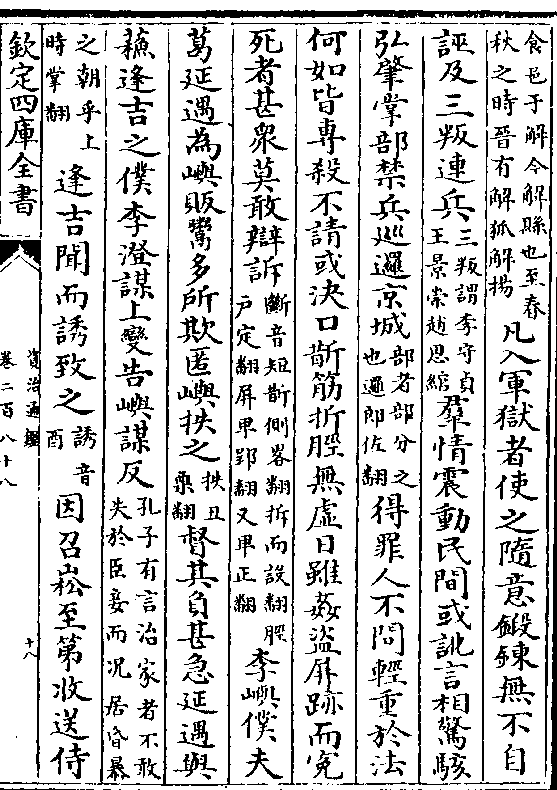 食邑于解今解縣也至春
秋之時晉有解狐解揚
凡入軍獄者使之隨意鍛鍊無不自
誣及三叛連兵
三叛謂李守貞
王景崇趙思綰
羣情震動民間或訛言相驚駭
弘肇掌部禁兵巡邏京城
部者部分之
也邏郎佐翻
得罪人不問輕重於法
何如皆專殺不請或決口斮筋折脛無虛日雖姦盜屏跡而冤
死者甚衆莫敢辯訴
斷音短斮側畧翻折而設翻脛
戸定翻屏卑郢翻又卑正翻
李嶼僕夫
葛延遇為嶼販鬻多所欺匿嶼抶之
抶丑
栗翻
督其負甚急延遇與
蘇逢吉之僕李澄謀上變告嶼謀反
孔子有言治家者不敢
失於臣妾而况居昏暴
之朝乎上
時掌翻
逢吉聞而誘致之
誘音
酉
因召崧至第收送侍
欽定四庫全書
資治通鑑
卷二百八十八
十八